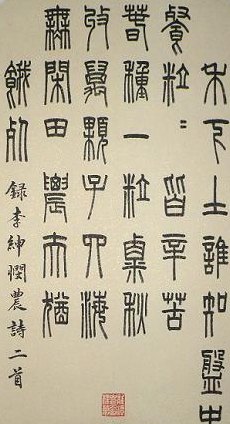 禾下土誰知盤中
餐粒〻皆辛苦
春種一粒粟秋
收萬顆子四海
無閑田農夫猶
餓死
錄李紳憫農詩二首